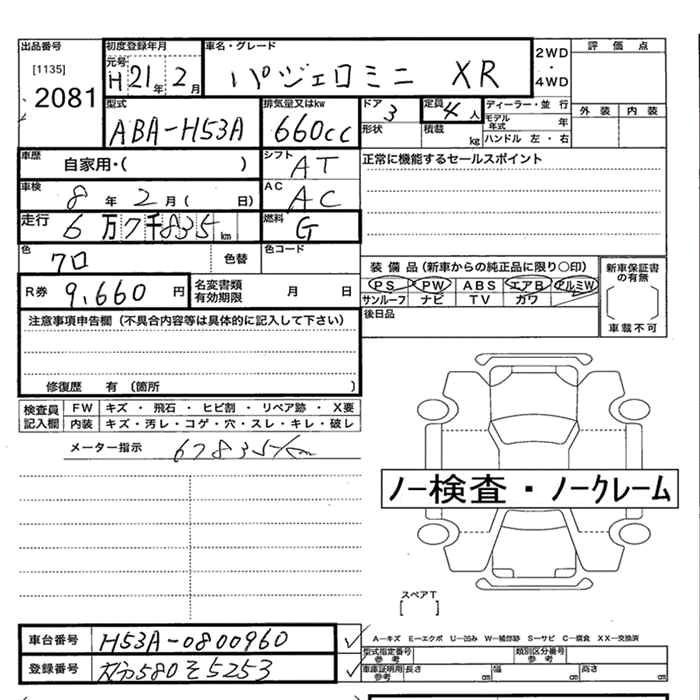 出品番号 初度登録年月 車名・グレード 2WD・4WD 評価点
[1135] 元号
2081 H21年2月 パジェロミニ XR
外装 内装
型式 排気量又はkw ドア 3 定員 4人 ディーラー・並行
モデル年式 年
ABA-H53A 660cc 形状 積載 kg ハンドル 左・右
車歴 自家用・( ) シフト AT 正常に機能するセールスポイント
車検 8年2月( 日) AC AC
走行 6万7千835km 燃料 G
色 クロ 色替 色コード
装備品(新車からの純正品に限り○印) 新車保証書の有無
R券 9,660円 名変書類有効期限 月 日
PS PW ABS エアB アルミW
サンルーフ ナビ TV カワ
車載不可
注意事項申告欄(不具合内容等は具体的に記入して下さい) 後日品
修復歴 有(箇所 )
検査員記入欄 FW キズ・飛石・ヒビ割・リペア跡・X要
内装 キズ・汚レ・コゲ・穴・スレ・キレ・破レ
メーター指示 67835km
ノー検査・ノークレーム
スペアT
[ ]
車台番号 H53A-0800960 A-キズ E-エクボ U-凹み W-補修跡 S-サビ C-腐食 XX-交換済
型式指定番号 参考 類別区分番号 参考
登録番号 580そ5253 車庫証明用 参考 長さ cm 幅 cm 高さ cm